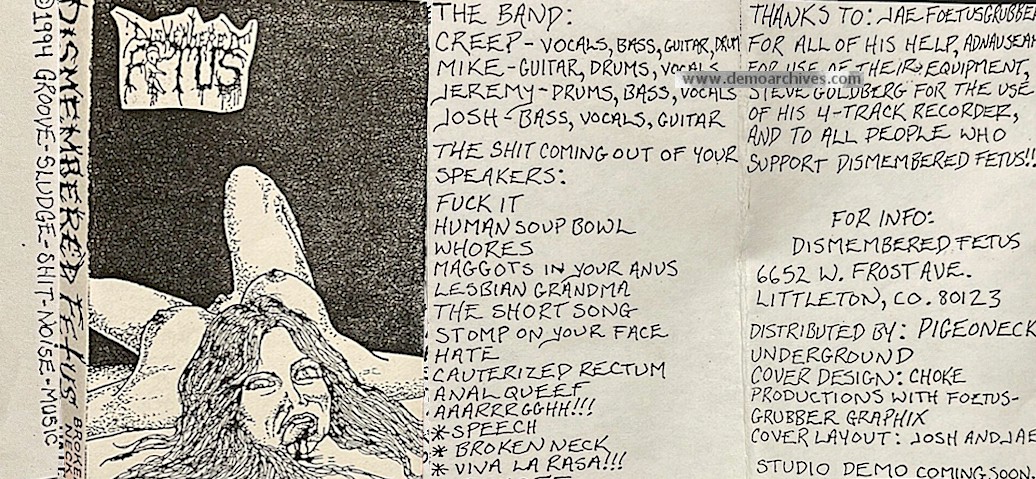 ©1994 GROOVE-SLUDGE-SHIT-NOISE-MUSIC
DISMEMBERED FETUS
BROKE
NECK
DISMEMBERED
FETUS
THE BAND:
CREEP-VOCALS, BASS, GUITAR, DRUM
MIKE-GUITAR, DRUMS, VOCALS
JEREMY-DRUMS, BASS, VOCALS
JOSH-BASS, VOCALS, GUITAR
THE SHIT COMING OUT OF YOUR
SPEAKERS:
FUCK IT
HUMAN SOUP BOWL
WHORES
MAGGOTS IN YOUR ANUS
LESBIAN GRANDMA
THE SHORT SONG
STOMP ON YOUR FACE
HATE
CAUTERIZED RECTUM
ANAL QUEEF
AAARRRGGHH!!!
*SPEECH
* BROKEN NECK
* VIVA LA RASA!!!
THANKS TO: JAE FOETUSGRUBBE
FOR ALL OF HIS HELP, ADNAUSEA
FOR USE OF THEIR EQUIPMENT,
www.demoarchives.com
STEVE GOLDBERG FOR THE USE
OF HIS 4-TRACK RECORDER,
AND TO ALL PEOPLE WHO
SUPPORT DISMEMBERED FETUS!!
FOR INFO:
DISMEMBERED FETUS
6652 W. FROST AVE.
LITTLETON, CO. 80123
DISTRIBUTED BY: PIGEONECK
UNDERGROUND
COVER DESIGN: CHOKE
PRODUCTIONS WITH FOETUS-
GRUBBER GRAPHIX
COVER LAYOUT: JOSH AND JAE
STUDIO DEMO COMING SOON